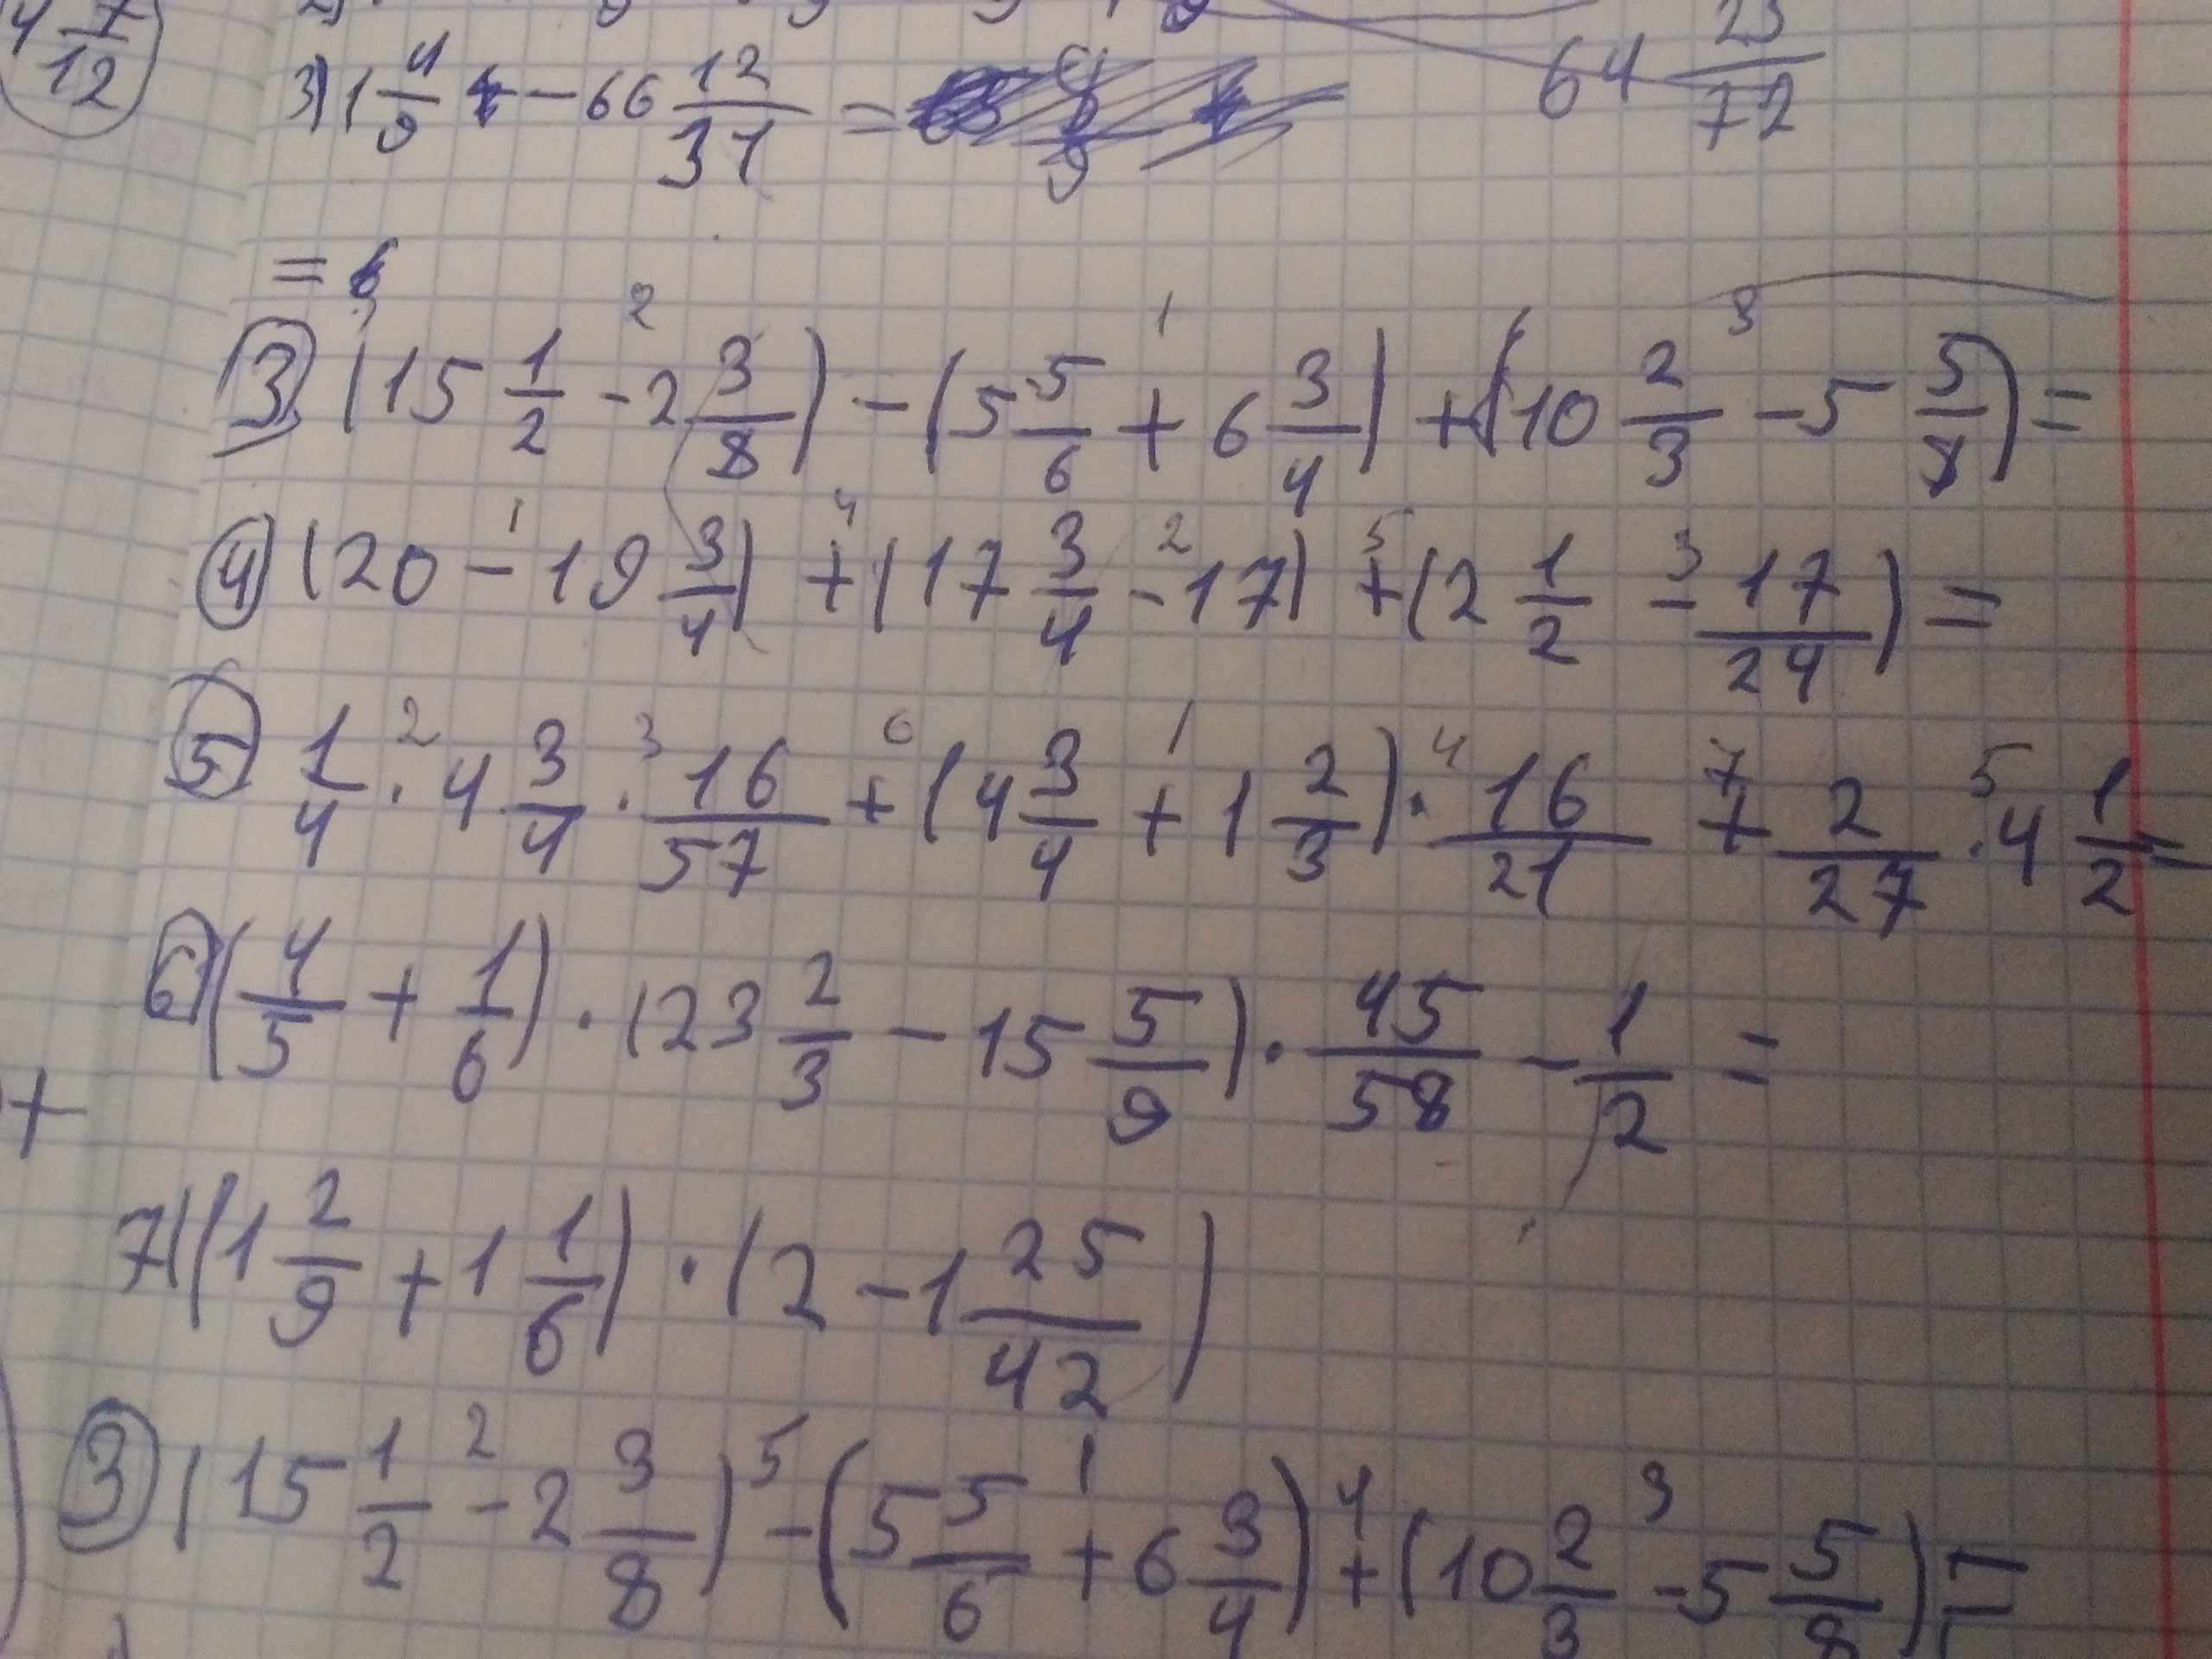 4 7/12
3) 1 4/9 - 66 12/37 = 64 23/72
=
3) (15 1/2 - 2 3/8) - (5 5/6 + 6 3/4) + (10 2/3 - 5 5/8) =
4) (20 - 19 3/4) + (17 3/4 - 17) + (2 1/2 - 17/24) =
5) 1/4 · 4 3/4 · 16/57 + (4 3/4 + 1 2/3) · 16/21 + 2/27 · 4 1/2 =
6) (4/5 + 1/6) · (23 2/3 - 15 5/9) · 45/58 - 1/2 =
+
7) (1 2/9 + 1 1/6) · (2 - 1 25/42)
3) (15 1/2 - 2 3/8) - (5 5/6 + 6 3/4) + (10 2/3 - 5 5/8) =